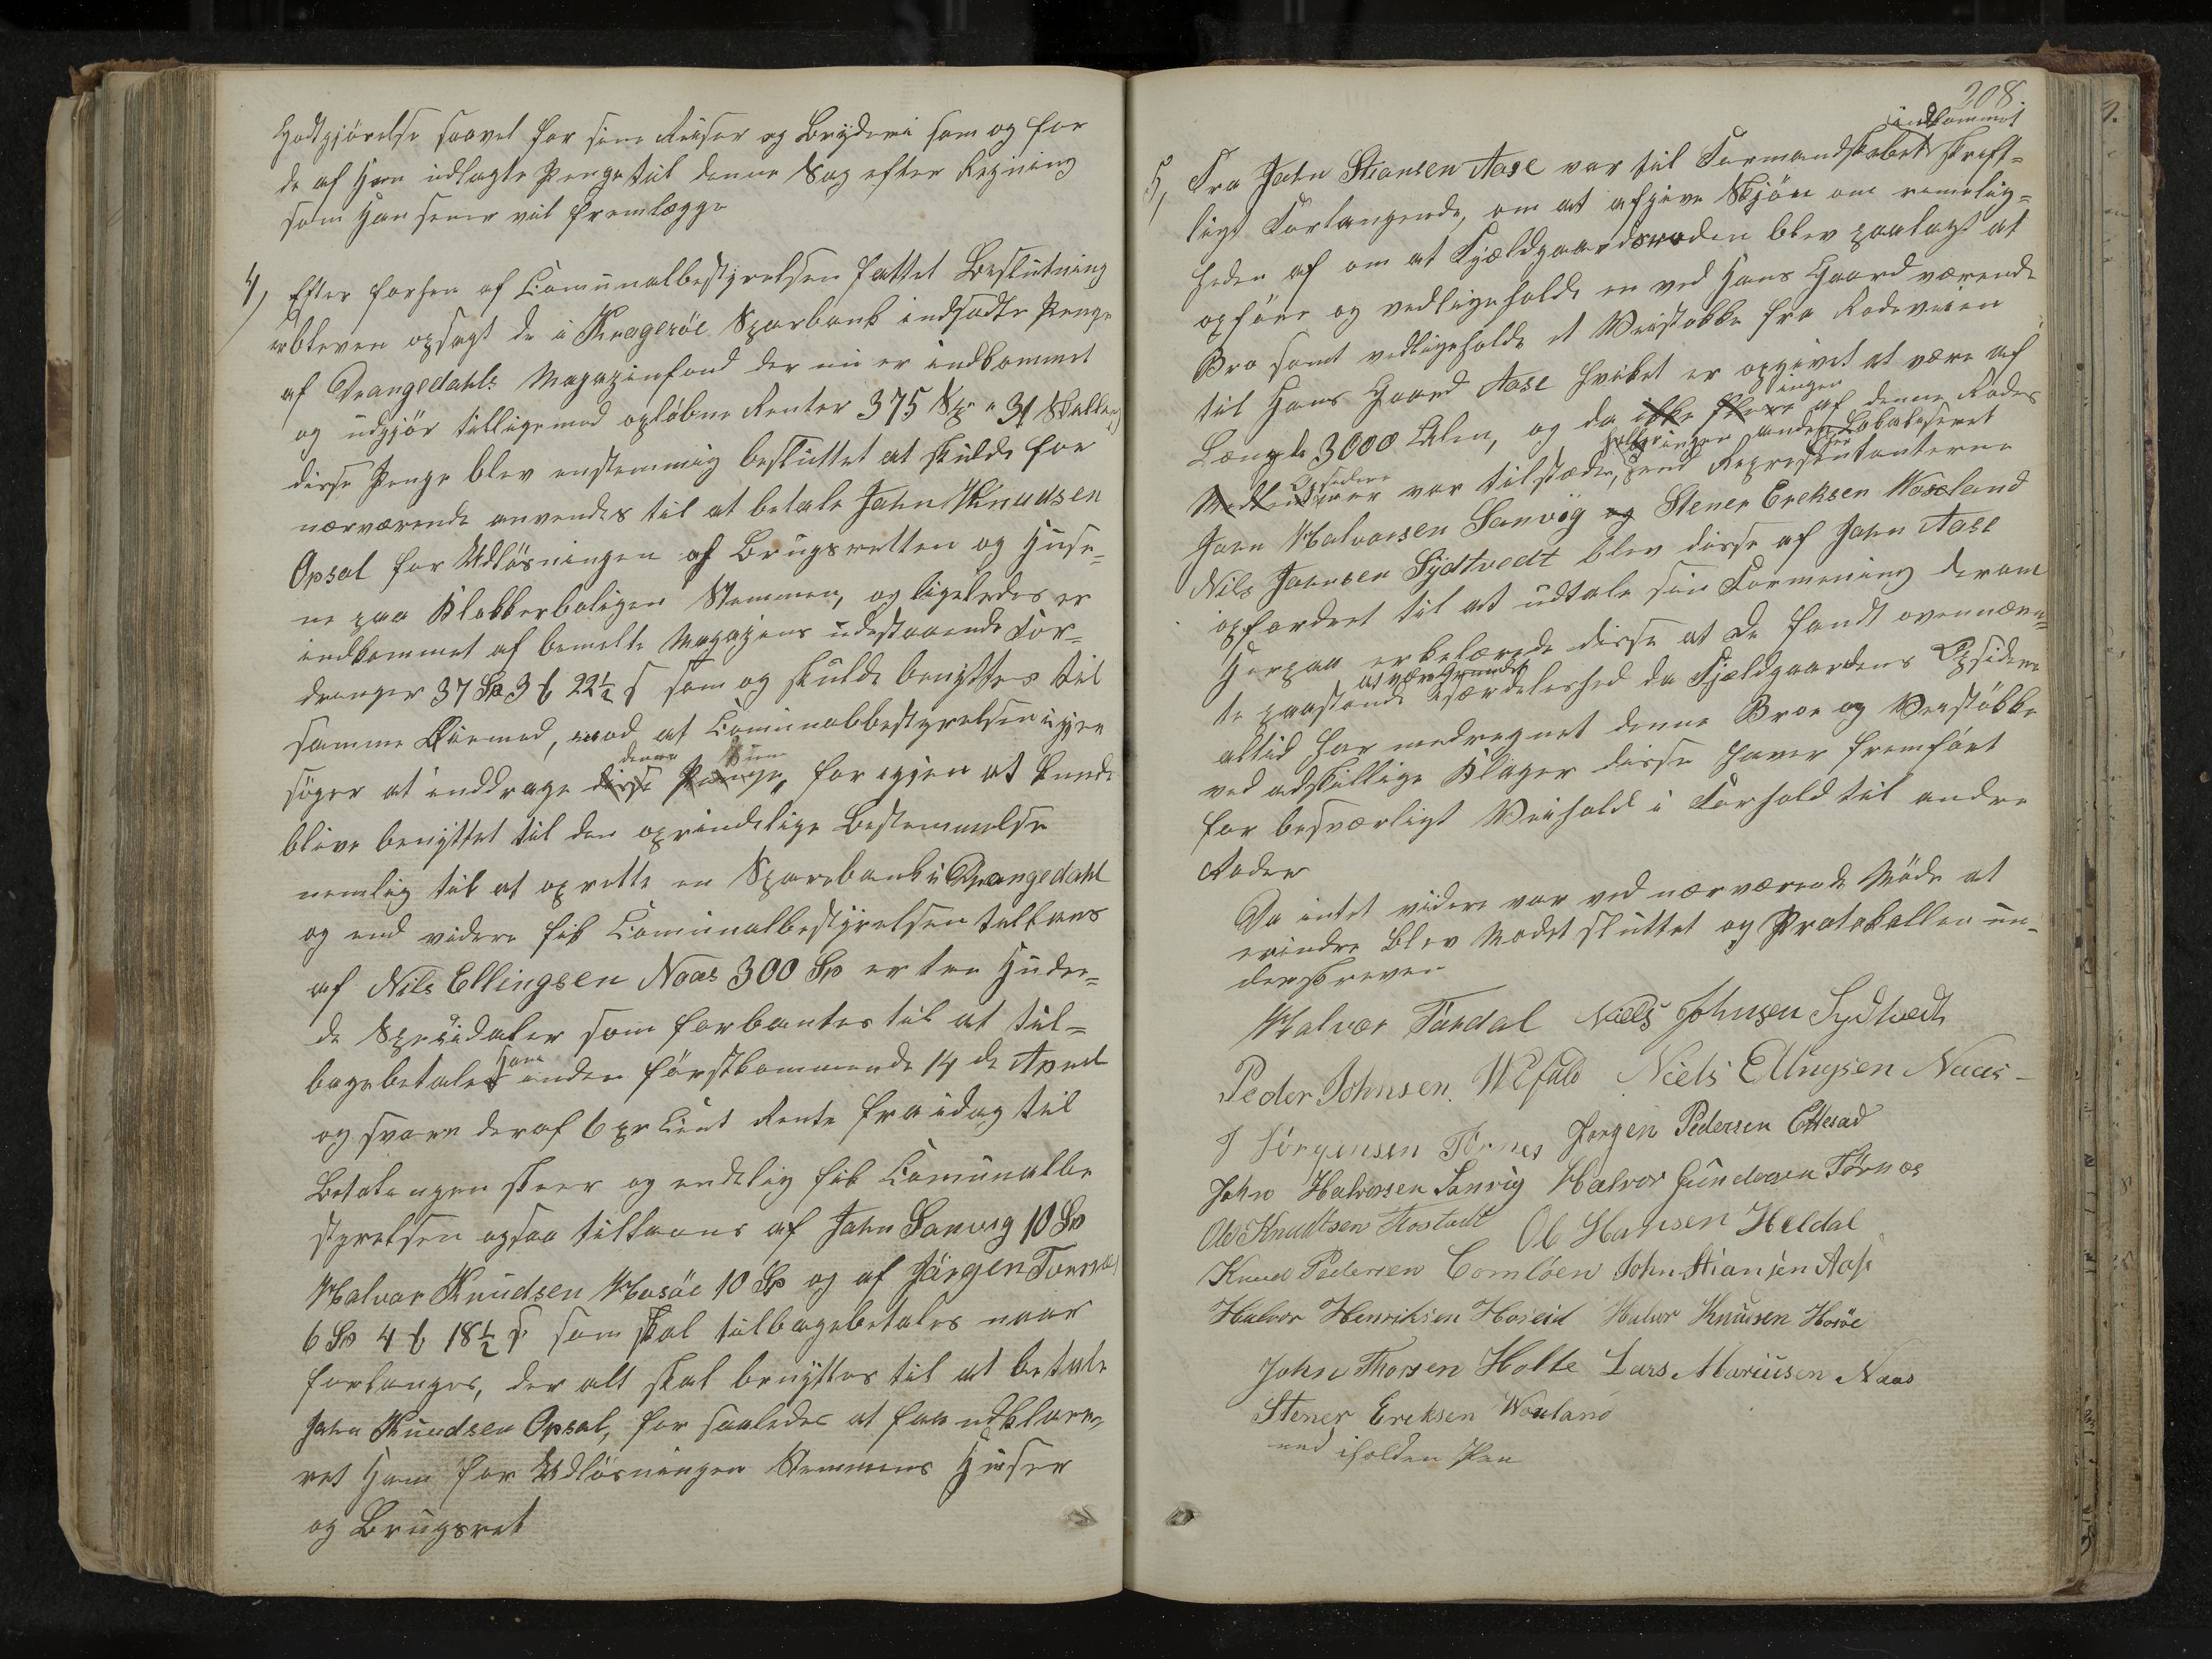 Godtgjörelse saavel for sine Reiser og Bryderi som og for
de af Ham udlagte Penge til denne Sag efter Regning
som Han senere vil fremlægge
4, Efter forhen af Communalbestyrelsen fattet Beslutning
erbleven opsagt de i Kragerøe Sparbank indsadte Penge
af Drangedahls Magazinfond der nu er indkommet
og udgjör tilligemed opløbne Renter 375 Spd 31 Skilling
disse Penge blev enstemmig besluttet at skulde for
nærværende anvendes til at betale John Knudsen
Opsal for Udlösningen af Brugsretten og Huse-
ne paa Klokkerboligen Stemmen, og ligeledes er
indkommet af bemelte Magazins udestaaende For-
dringer 37 Sp 3 ƒ 22½ s som og skulde benyttes til
samme Öiemed, mod at Communalbestyrelsen igjen
søger at inddrage disse Penge denne Sum, for igjen at kunde
blive benyttet til den oprindelige Bestemmelse
nemlig til at oprette en Sparebank i Drangedahl
og end videre fik Communalbestyrelsen tillaans
af Nils Ellingsen Naas 300 Sp er tre Hundre-
de Speciedaler som forbantes til at til-
bagebetales Ham inden førstkommende 14 de April
og svare deraf 6 pr Cient Rente fra idag til
Betalingen skeer og endelig fik Communalbe
styrelsen ogsaa tillaans af John Sanvig 10 Sp
Halvor Knudsen Hosöe 10 Sp og af Jörgen Tornæs
6 Sp 4 ƒ 18½ s som skal tilbagebetales naar
forlanges, der alt skal benyttes til at betale
John Knudsen Opsal, for saaledes at faa udklare-
ret Ham for Udlösningen Stemmens Huser
og Brugsret
208.
5, Fra John Stiansen Aase var til Formandskabet indkommet skrift-
ligt Forlangende, om at afgive Skjön om rimelig-
heden af om at Fjældgaardsroden blev paalagt at
opføre og vedligeholde en ved Hans Gaard værende
Bro samt vedligeholde et Veistøkke fra Rodeveien
til Hans Gaard Aase hvilket er opgivet at være af
Længde 3000 Alen, og da ikke flere ingen af denne Rodes
Opsidere var tilstæde, heller ingen anden end Repræsentanterne
John Halvorsen Sanvig og Stener Ereksen Woxeland
Nils Johnsen Sydtvedt blev disse af John Aase
opfordret til at udtale sin Formening derom
Herpaa erkelærede disse at de fandt ovennævn-
te paastande at være Grundet i særdeleshed da Fjeldgaardens Opsidere
altid har medregnet denne Broe og Veistøkke
ved adskillige Klager disse haver fremfört
for besværligt Veihold i Forhold til andre
Roder
Da intet videre var ved nærværende Möde at
erindre blev Mødet sluttet og Protokollen un-
derskreven
Halvor Tordal Niels Johnsen Sydtvedt
Peder Johnsen Wefald Niels Ellingsen Naas
J Jörgensen Törnes Jörgen Pedersen Ettesad
John Halvorsen Sanvig Halvor Gundersen Törnes
Ole Knudtsen Tostvedt Ole Hansen Heldal
Knud Pedersen Bomlöen John Stiansen Aase
Halvor Henriksen Hoseid Halvor Knudsen Hosöe
John Thorsen Holte Lars Mariusen Naas
Stener Ereksen Woxland
med iholden Pen